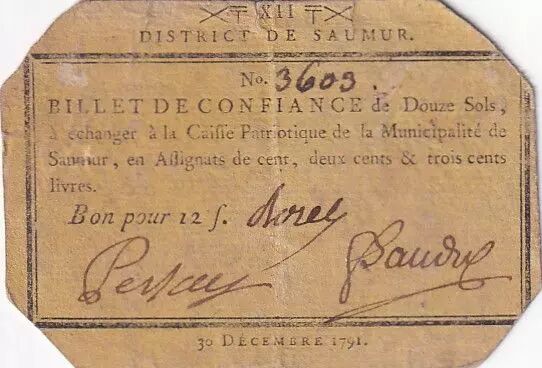 XII
DISTRICT DE SAUMUR.
No. 3603.
BILLET DE CONFIANCE de Douze Sols,
à échanger à la Caiſſe Patriotique de la Municipalité de
Saumur, en Aſſignats de cent, deux cents & trois cents
livres.
Bon pour 12 ſ.
30 DÉCEMBRE 1791.